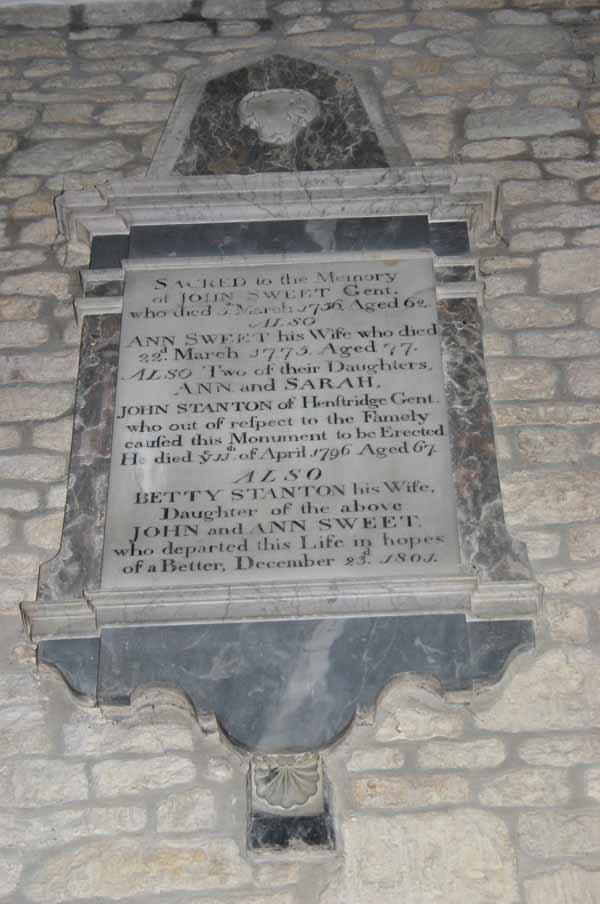 SACRED to the Memory
of JOHN SWEET Gent.
who died 5th March 1756. Aged 62.
ALSO
ANN SWEET his Wife who died
22d. March 1775. Aged 77.
ALSO Two of their Daughters,
ANN. and SARAH,
JOHN STANTON of Henſtridge Gent.
who out of reſpect to the Famely
cauſed this Monument to be Erected
He died ye 11th. of April 1796 Aged 67.
ALSO
BETTY STANTON his Wife,
Daughter of the above
JOHN and ANN SWEET.
who departed this Life in hopes
of a Better, December 23d. 1801.